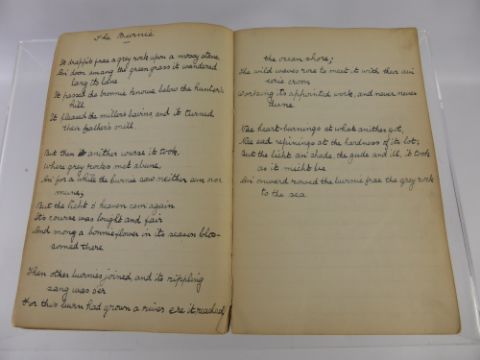 The Burnie
It drappit frae a grey rock upon a mossy stane,
An' doon amang the green grass it wandered
lang its lane
It passed the broomie knowe below the hunter's
hill
It pleased the miller's bairns and it turned
their father's mill.
But then anither course it took,
where grey rocks met abune,
An' for a while the burnie saw neither sun nor
mune;
But the licht o' heaven cam again
Its course was bright and fair
And mony a bonnie flower in its season blos-
somed there
Then other burnies joined and its rippling
sang was o'er
For this burn had grown a river ere it reached
the ocean shore;
The wild waves rose to meet it with their ain
eerie croon
Working its appointed work, and never never
dune.
Nae heart-burnings at what anither got,
Nae sad repinings at the hardness of its lot,
But the licht an' shade, the gude and ill, It took
as it micht be
An' onward rowed the burnie frae the grey rock
to the sea.